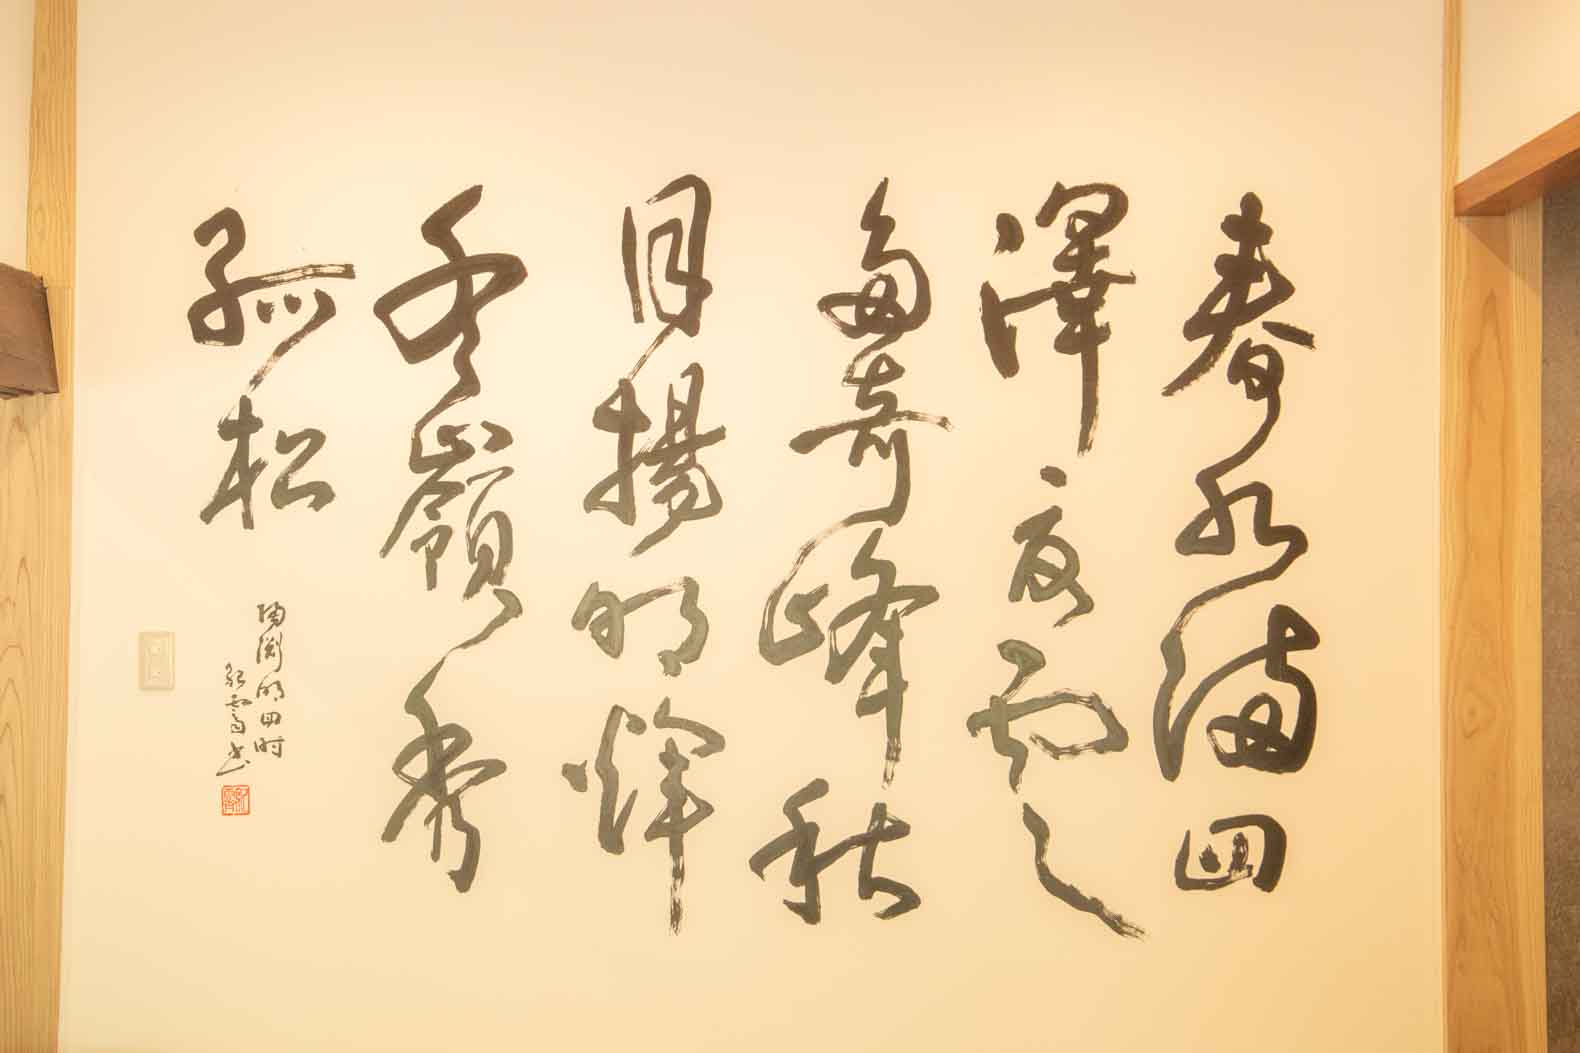 春水満四
澤夏雲
多奇峰秋
月揚明煇
冬嶺秀
孤松
陶淵明四時
書